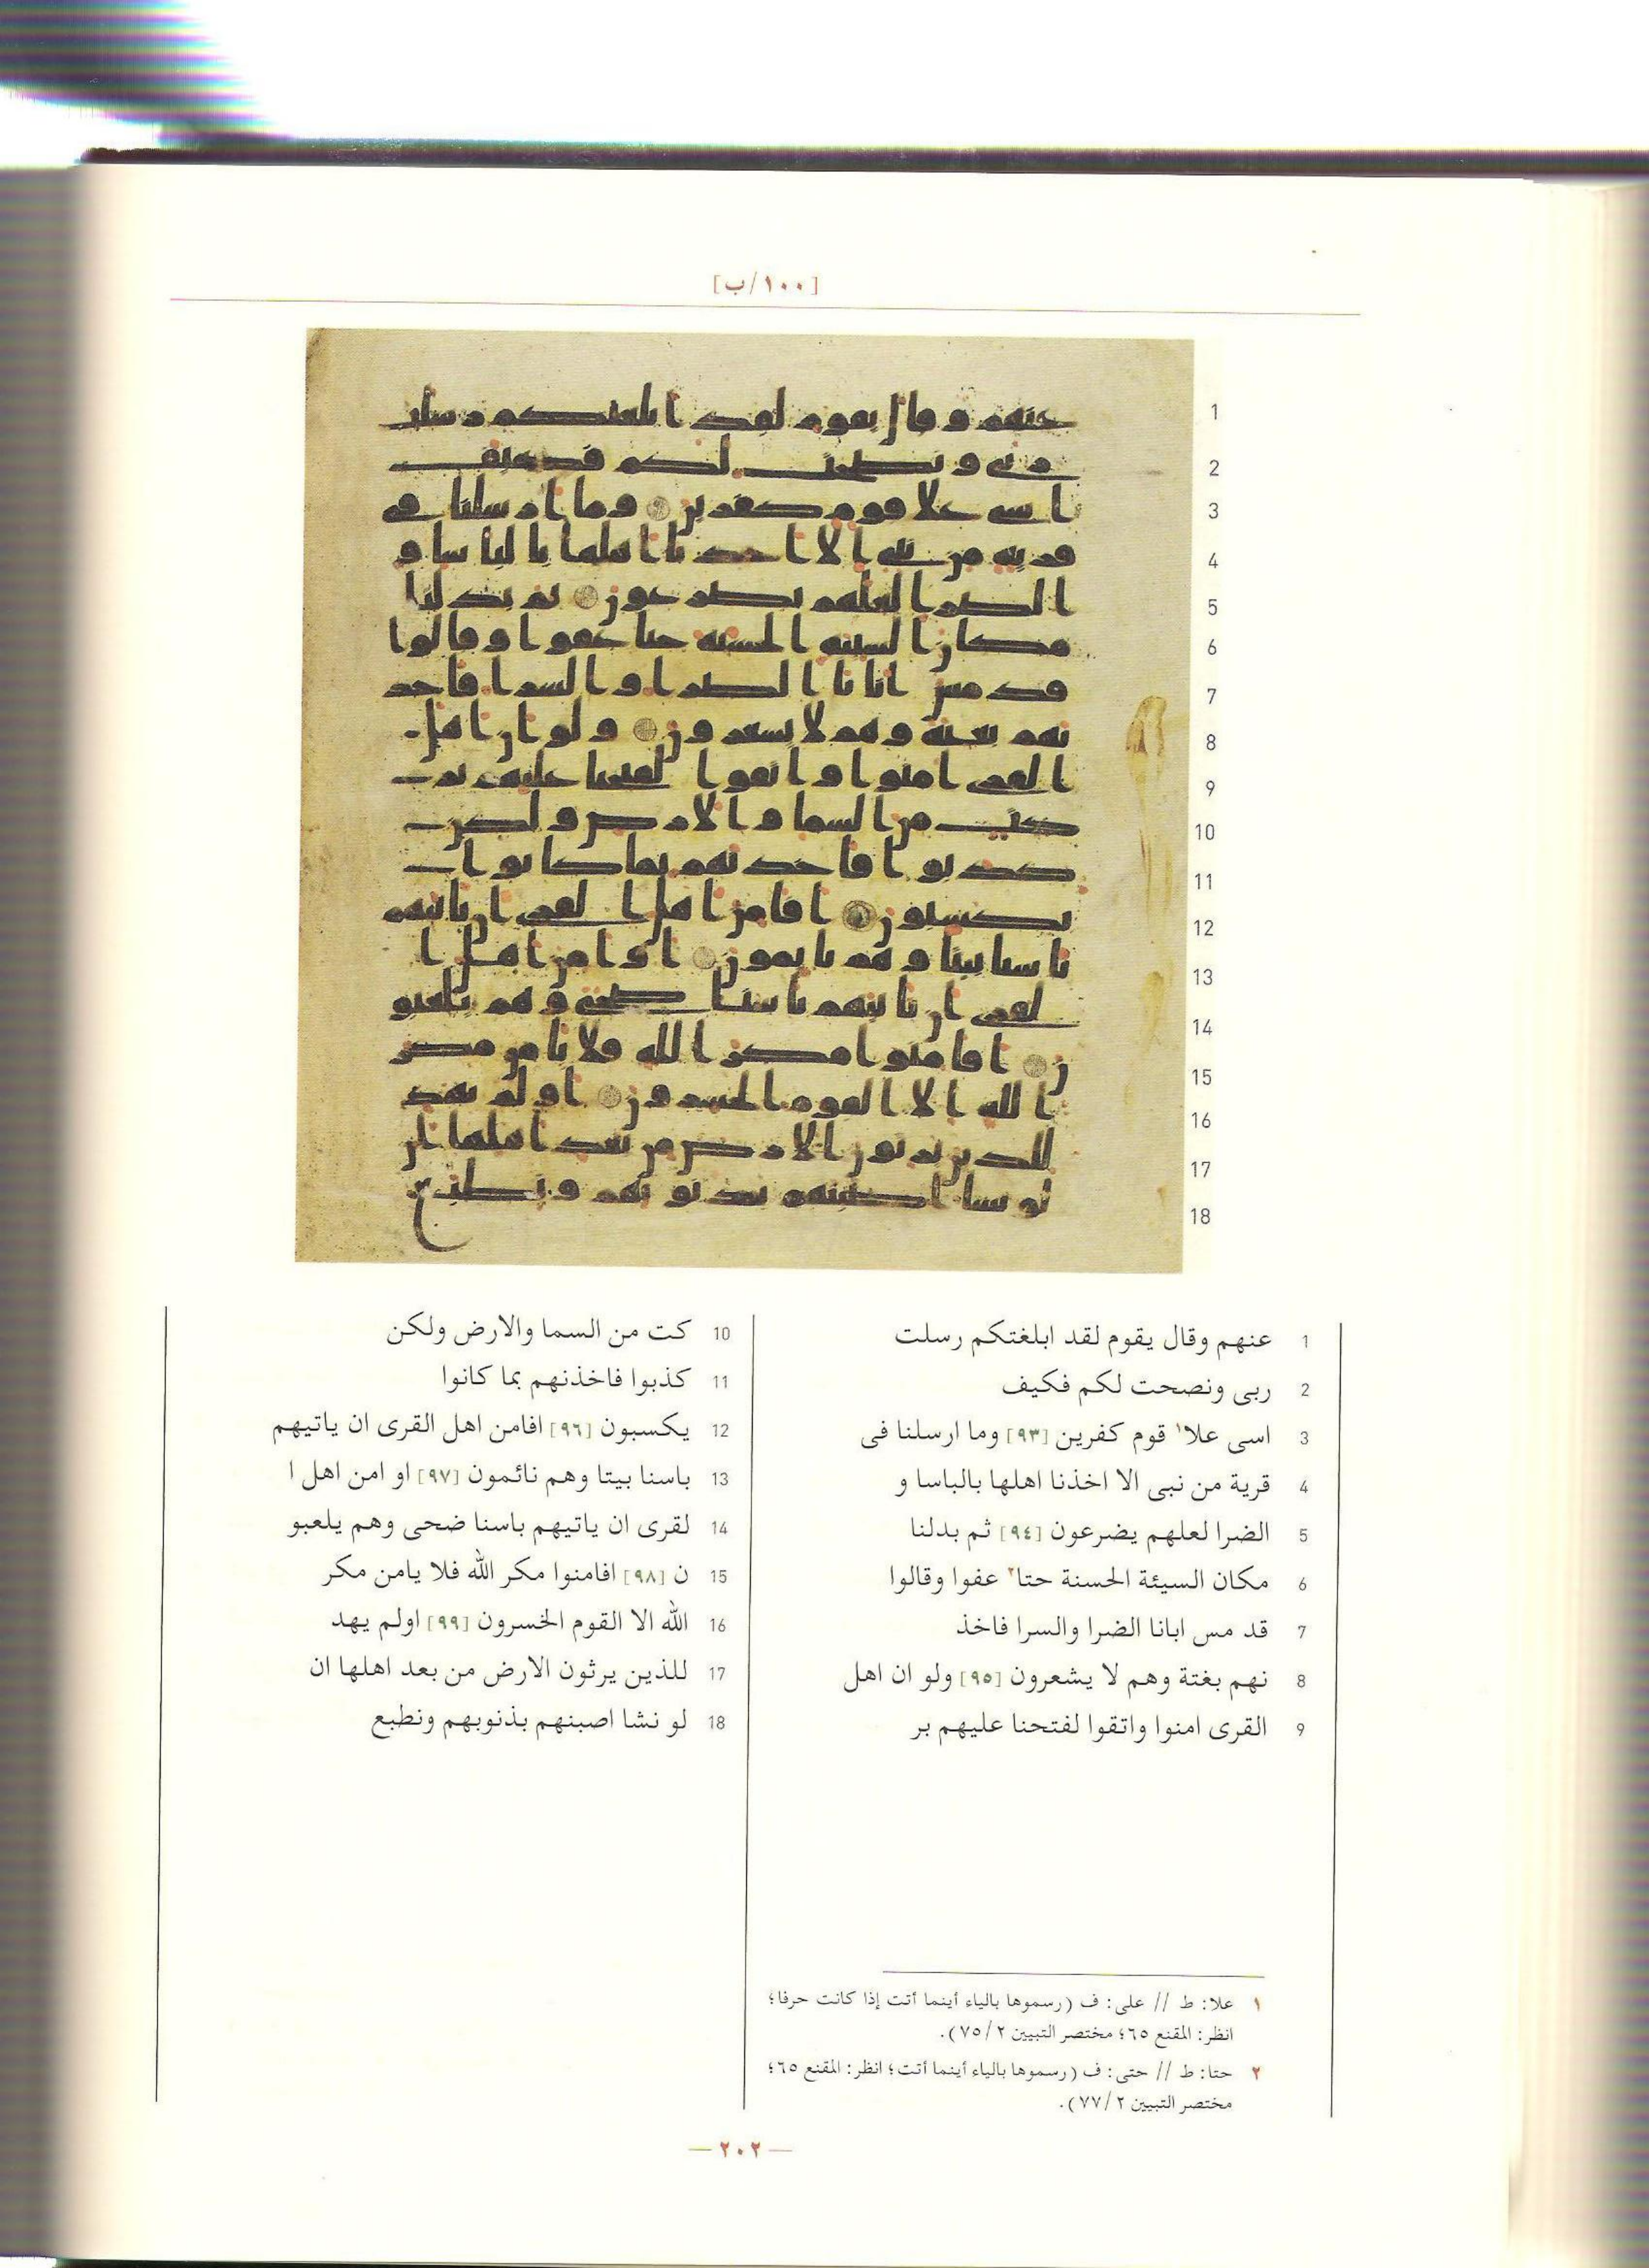 [١٠٠/ب]
1 عنهم وقال يقوم لقد ابلغتكم رسلت
2 ربى ونصحت لكم فكيف
3 اسى علا١ قوم كفرين [٩٣] وما ارسلنا فى
4 قرية من نبى الا اخذنا اهلها بالباسا و
5 الضرا لعلهم يضرعون [٩٤] ثم بدلنا
6 مكان السيئة الحسنة حتا٢ عفوا وقالوا
7 قد مس ابانا الضرا والسرا فاخذ
8 نهم بغتة وهم لا يشعرون [٩٥] ولو ان اهل
9 القرى امنوا واتقوا لفتحنا عليهم بر
10 كت من السما والارض ولكن
11 كذبوا فاخذنهم بما كانوا
12 يكسبون [٩٦] افامن اهل القرى ان ياتيهم
13 باسنا بيتا وهم نائمون [٩٧] او امن اهل ا
14 لقرى ان ياتيهم باسنا ضحى وهم يلعبو
15 ن [٩٨] افامنوا مكر الله فلا يامن مكر
16 الله الا القوم الخسرون [٩٩] اولم يهد
17 للذين يرثون الارض من بعد اهلها ان
18 لو نشا اصبنهم بذنوبهم ونطبع
١ علا: ط // على: ف (رسموها بالياء أينما أتت إذا كانت حرفا؛
انظر: المقنع ٦٥؛ مختصر التبيين ٢/ ٧٥).
٢ حتا: ط // حتى: ف (رسموها بالياء أينما أتت؛ انظر: المقنع ٦٥؛
مختصر التبيين ٢/ ٧٧).
— ٢٠٢ —